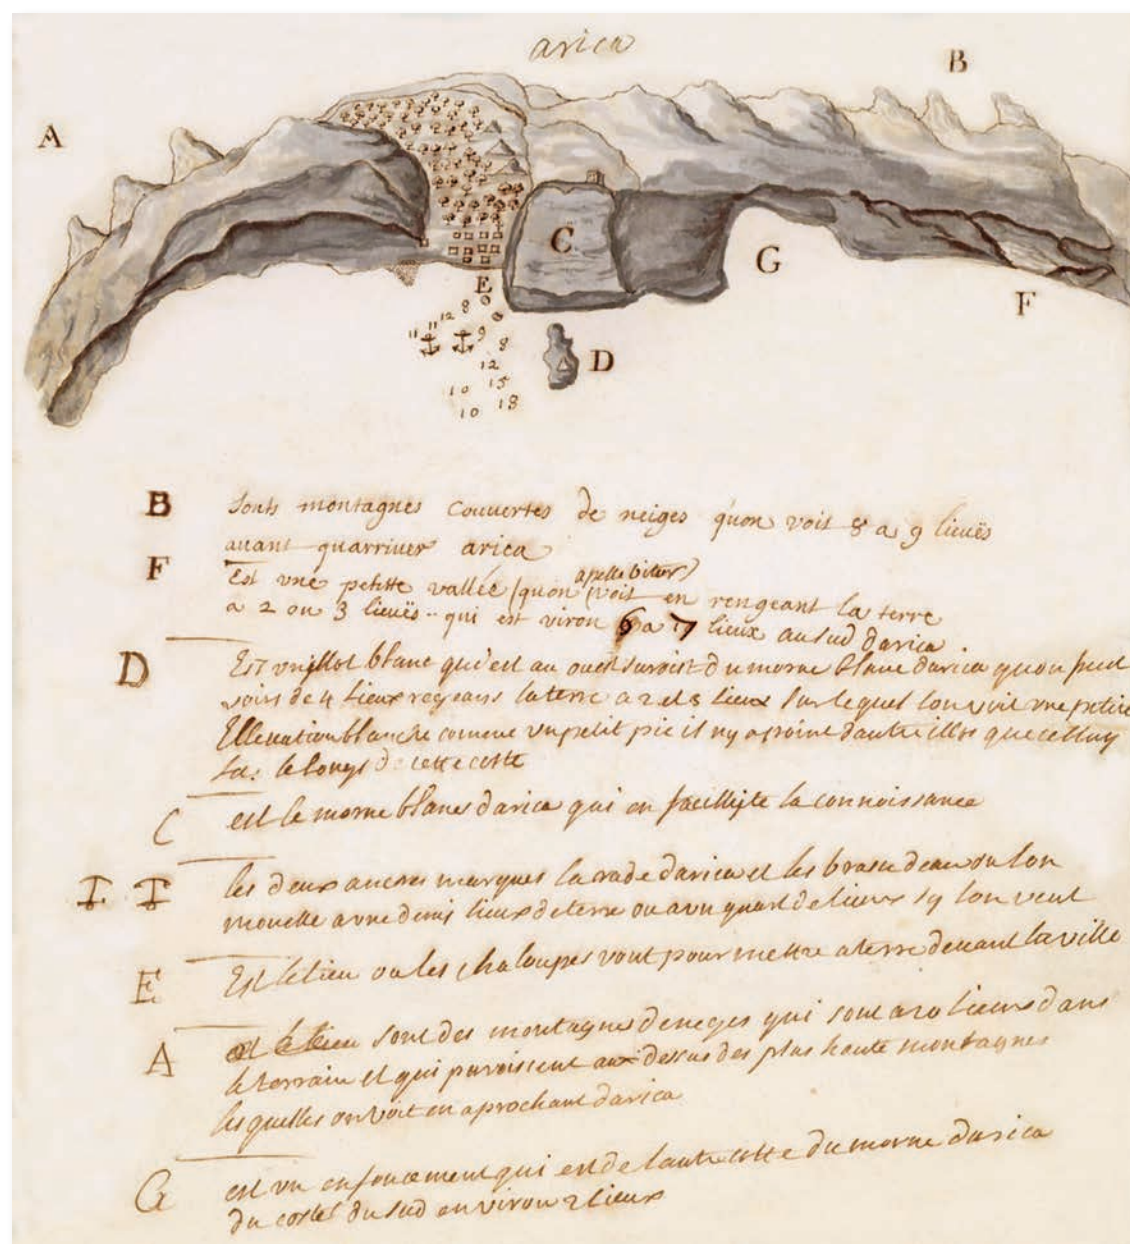 arica
B
A
C
G
E
F
8
12
11
11
9
8
D
12
10 15
10 18
B Sonts montagnes couuertes de neiges qu'on voit 8 a 9 lieuës
auant quarriuer arica
F Est vne petitte vallée (quon apelle vitor) voit en rengeant la terre
a 2 ou 3 lieuës .. qui est viron 6 a 7 lieux au sud darica .
D Est vn illot blanc qui est au ouest du morne blanc darica quon peut
voir de 4 lieux la terre a 2 lieux sur lequel lon voit vne petite
Elleuation blanche comme vn petit pic il ny a point dautre illot que celluy
la le long de cette coste
C est le morne blanc darica qui en facillite la connoissance
les deux ancres marques la rade darica et les brasse deau ou lon
mouille a vne demis lieux de terre ou a vn quart de lieux sy lon veut
E Est le lieu ou les chaloupes vont pour mettre a terre deuant la ville
A sont des montagnes de neges qui sont a lieux dans
le terrain et qui paroissent au dessus des plus haute montagnes
les quelles on voit en aprochant darica
G est vn enfoncement qui est de lautre coste du morne darica
du costé du sud environ 2 lieux